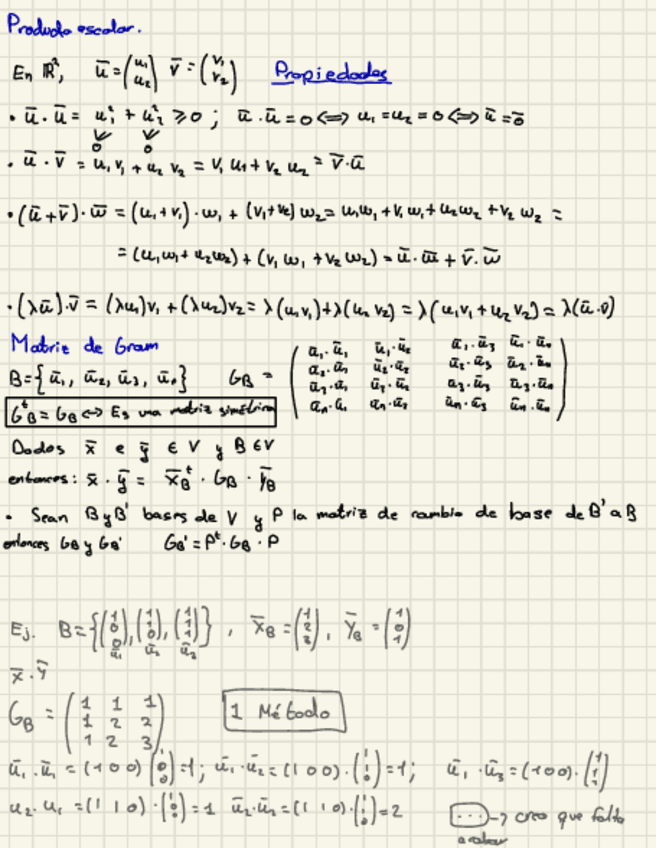 Producto escalar.
En ℝ², ū = (u₁ u₂) v̄ = (v₁ v₂) Propiedades
• ū · ū = u₁² + u₂² ≥ 0 ; ū · ū = 0 ⟺ u₁ = u₂ = 0 ⟺ ū = ō
0 0
• ū · v̄ = u₁ v₁ + u₂ v₂ = v₁ u₁ + v₂ u₂ = v̄ · ū
• (ū + v̄) · w̄ = (u₁ + v₁) · w₁ + (v₁ + v₂) w₂ = u₁w₁ + v₁w₁ + u₂w₂ + v₂w₂ =
= (u₁w₁ + u₂w₂) + (v₁w₁ + v₂w₂) = ū · w̄ + v̄ · w̄
• (λū) · v̄ = (λu₁)v₁ + (λu₂)v₂ = λ(u₁v₁) + λ(u₂v₂) = λ(u₁v₁ + u₂v₂) = λ(ū · v̄)
Matriz de Gram
B = {ū₁, ū₂, ū₃, ūₙ} G_B = ( ū₁·ū₁ ū₁·ū₂ ū₁·ū₃ ū₁·ūₙ
ū₂·ū₁ ū₂·ū₂ ū₂·ū₃ ū₂·ūₙ
ū₃·ū₁ ū₃·ū₂ ū₃·ū₃ ū₃·ūₙ
ūₙ·ū₁ ūₙ·ū₂ ūₙ·ū₃ ūₙ·ūₙ )
Gᵗ_B = G_B ⟷ Es una matriz simétrica
Dados x̄ e ȳ ∈ V y B ∈ V
entonces: x̄ · ȳ = x̄ᵗ_B · G_B · ȳ_B
• Sean B y B' bases de V y P la matriz de cambio de base de B' a B
entonces G_B y G_B' G_B' = Pᵗ · G_B · P
Ej. B = {(1 0 0), (1 1 0), (1 1 1)} , x̄_B = (1 2 3) , ȳ_B = (1 0 1)
ū₁ ū₂ ū₃
x̄ · ȳ
G_B = ( 1 1 1
1 2 2
1 2 3 )
1 Método
ū₁ · ū₁ = (1 0 0) (1 0 0) = 1; ū₁ · ū₂ = (1 0 0) · (1 1 0) = 1; ū₁ · ū₃ = (1 0 0) · (1 1 1)
u₂ · u₁ = (1 1 0) · (1 0 0) = 1 ū₂ · ū₂ = (1 1 0) · (1 1 0) = 2
... → creo que falta
acabar